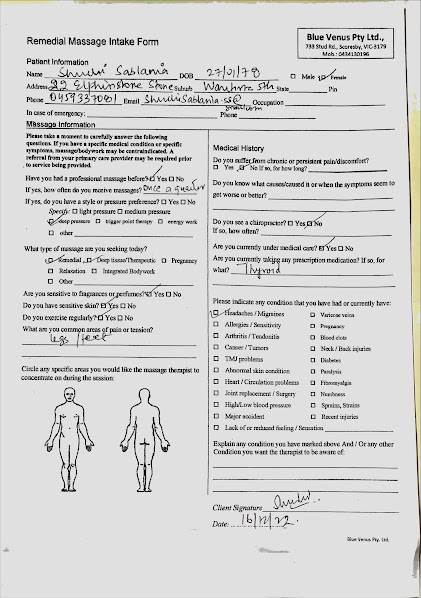 Remedial Massage Intake Form
Blue Venus Pty Ltd.,
733 Stud Rd., Scoresby, VIC-3179
Mob.: 0434130196
Patient Information
Name Shruti Sablania DOB 27/01/78 □ Male ☑ Female
Address 22 Elphinstone Suburb State Pin
Phone 0459337081 Email Occupation
In case of emergency: Phone
Massage Information
Please take a moment to carefully answer the following
questions. If you have a specific medical condition or specific
symptoms, massage/bodywork may be contraindicated. A
referral from your primary care provider may be required prior
to service being provided.
Have you had a professional massage before? ☑ Yes □ No
If yes, how often do you receive massages? Once a quarter
If yes, do you have a style or pressure preference? □ Yes □ No
Specify: □ light pressure □ medium pressure
☑ deep pressure □ trigger point therapy □ energy work
□ other
What type of massage are you seeking today?
☑ Remedial ☑ Deep tissue/Therapeutic □ Pregnancy
□ Relaxation □ Integrated Bodywork
□ Other
Are you sensitive to fragrances or perfumes? ☑ Yes □ No
Do you have sensitive skin? ☑ Yes □ No
Do you exercise regularly? ☑ Yes □ No
What are you common areas of pain or tension?
legs / feet
Circle any specific areas you would like the massage therapist to
concentrate on during the session:
Medical History
Do you suffer from chronic or persistent pain/discomfort?
□ Yes ☑ No If so, for how long?
Do you know what causes/caused it or when the symptoms seem to
get worse or better?
Do you see a chiropractor? □ Yes ☑ No
If so, how often?
Are you currently under medical care? ☑ Yes □ No
Are you currently taking any prescription medication? If so, for
what? Thyroid
Please indicate any condition that you have had or currently have:
☑ Headaches / Migraines □ Varicose veins
□ Allergies / Sensitivity □ Pregnancy
□ Arthritis / Tendonitis □ Blood clots
□ Cancer / Tumors □ Neck / Back injuries
□ TMJ problems □ Diabetes
□ Abnormal skin condition □ Paralysis
□ Heart / Circulation problems □ Fibromyalgia
□ Joint replacement / Surgery □ Numbness
□ High/Low blood pressure □ Sprains, Strains
□ Major accident □ Recent injuries
□ Lack of or reduced feeling / Sensation
Explain any condition you have marked above And / Or any other
Condition you want the therapist to be aware of:
Client Signature Shruti
Date: 16/12/22.
Blue Venus Pty. Ltd.